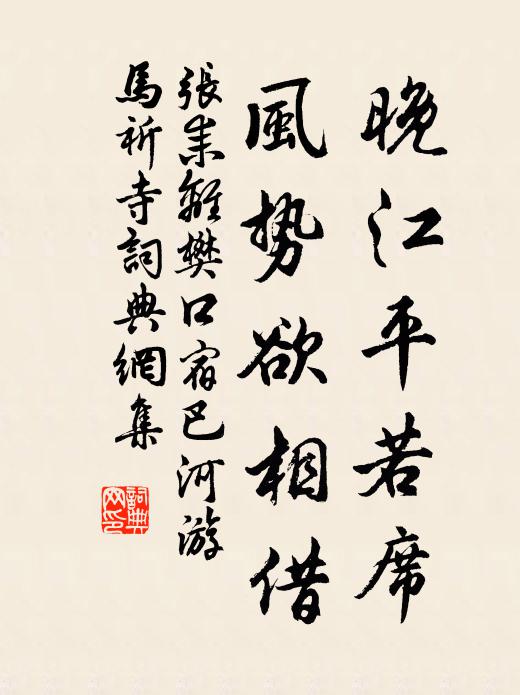 晚江平若席
風勢欲相借
張耒離樊口宿巴河游
馬祈寺詞典網集
詞典
网印